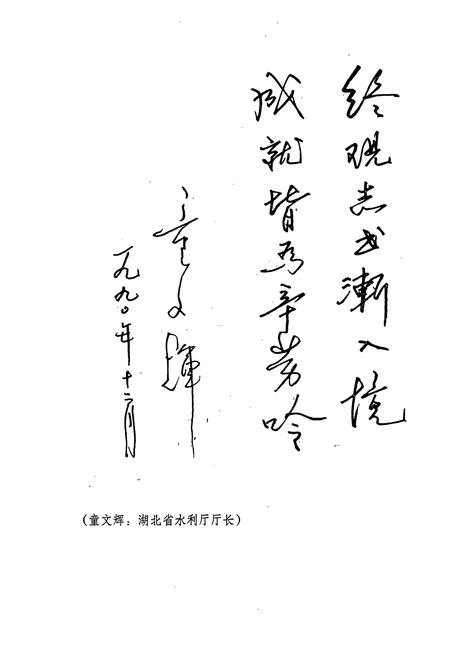 终观志书漸入境
成就皆为辛劳吟
童文輝
一九九〇年十二月
(童文辉：湖北省水利厅厅长)